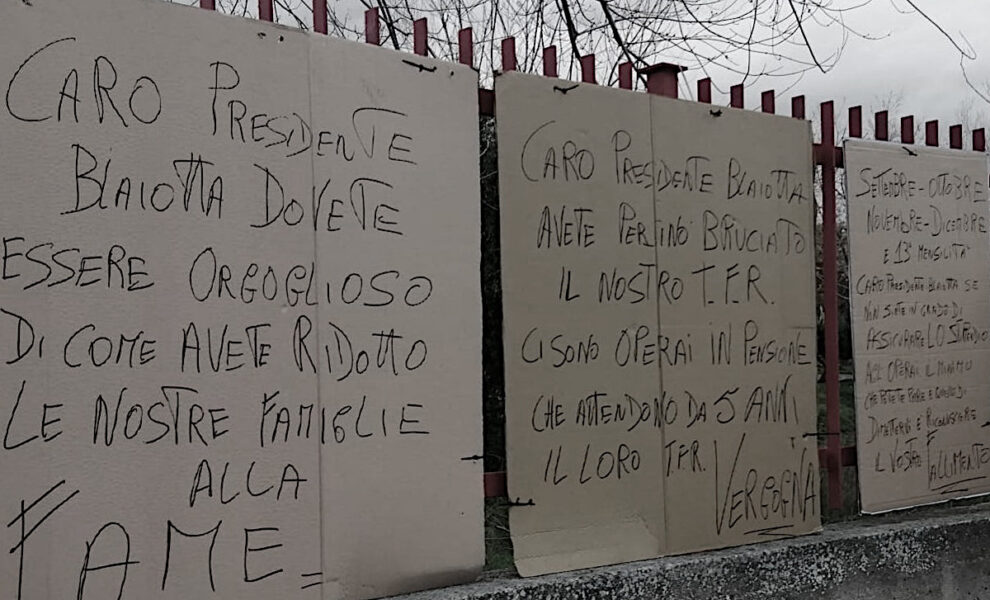 CARO PRESIDENTE
BLAIOTTA DOVETE
ESSERE ORGOGLIOSO
DI COME AVETE RIDOTTO
LE NOSTRE FAMIGLIE
ALLA
FAME
CARO PRESIDENTE BLAIOTTA
AVETE PERFINO BRUCIATO
IL NOSTRO T.F.R.
CI SONO OPERAI IN PENSIONE
CHE ATTENDONO DA 5 ANNI
IL LORO T.F.R. VERGOGNA
SETTEMBRE - OTTOBRE
NOVEMBRE - DICEMBRE
E 13ª MENSILITA'
CARO PRESIDENTE BLAIOTTA SE
NON SIETE IN GRADO DI
ASSICURARE LO STIPENDIO
AGLI OPERAI IL MINIMO
CHE POTETE FARE E' QUELLO DI
DIMETTERVI E RICONOSCERE
IL VOSTRO FALLIMENTO